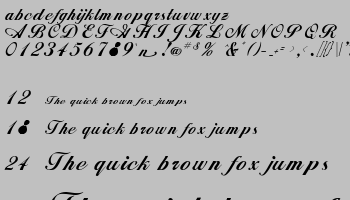 abcdefghijklmnopqrstuvwxyz
ABCDEFGHIJKLMNOPQR
01234567 9
12 The quick brown fox jumps
1 The quick brown fox jumps
24 The quick brown fox jumps